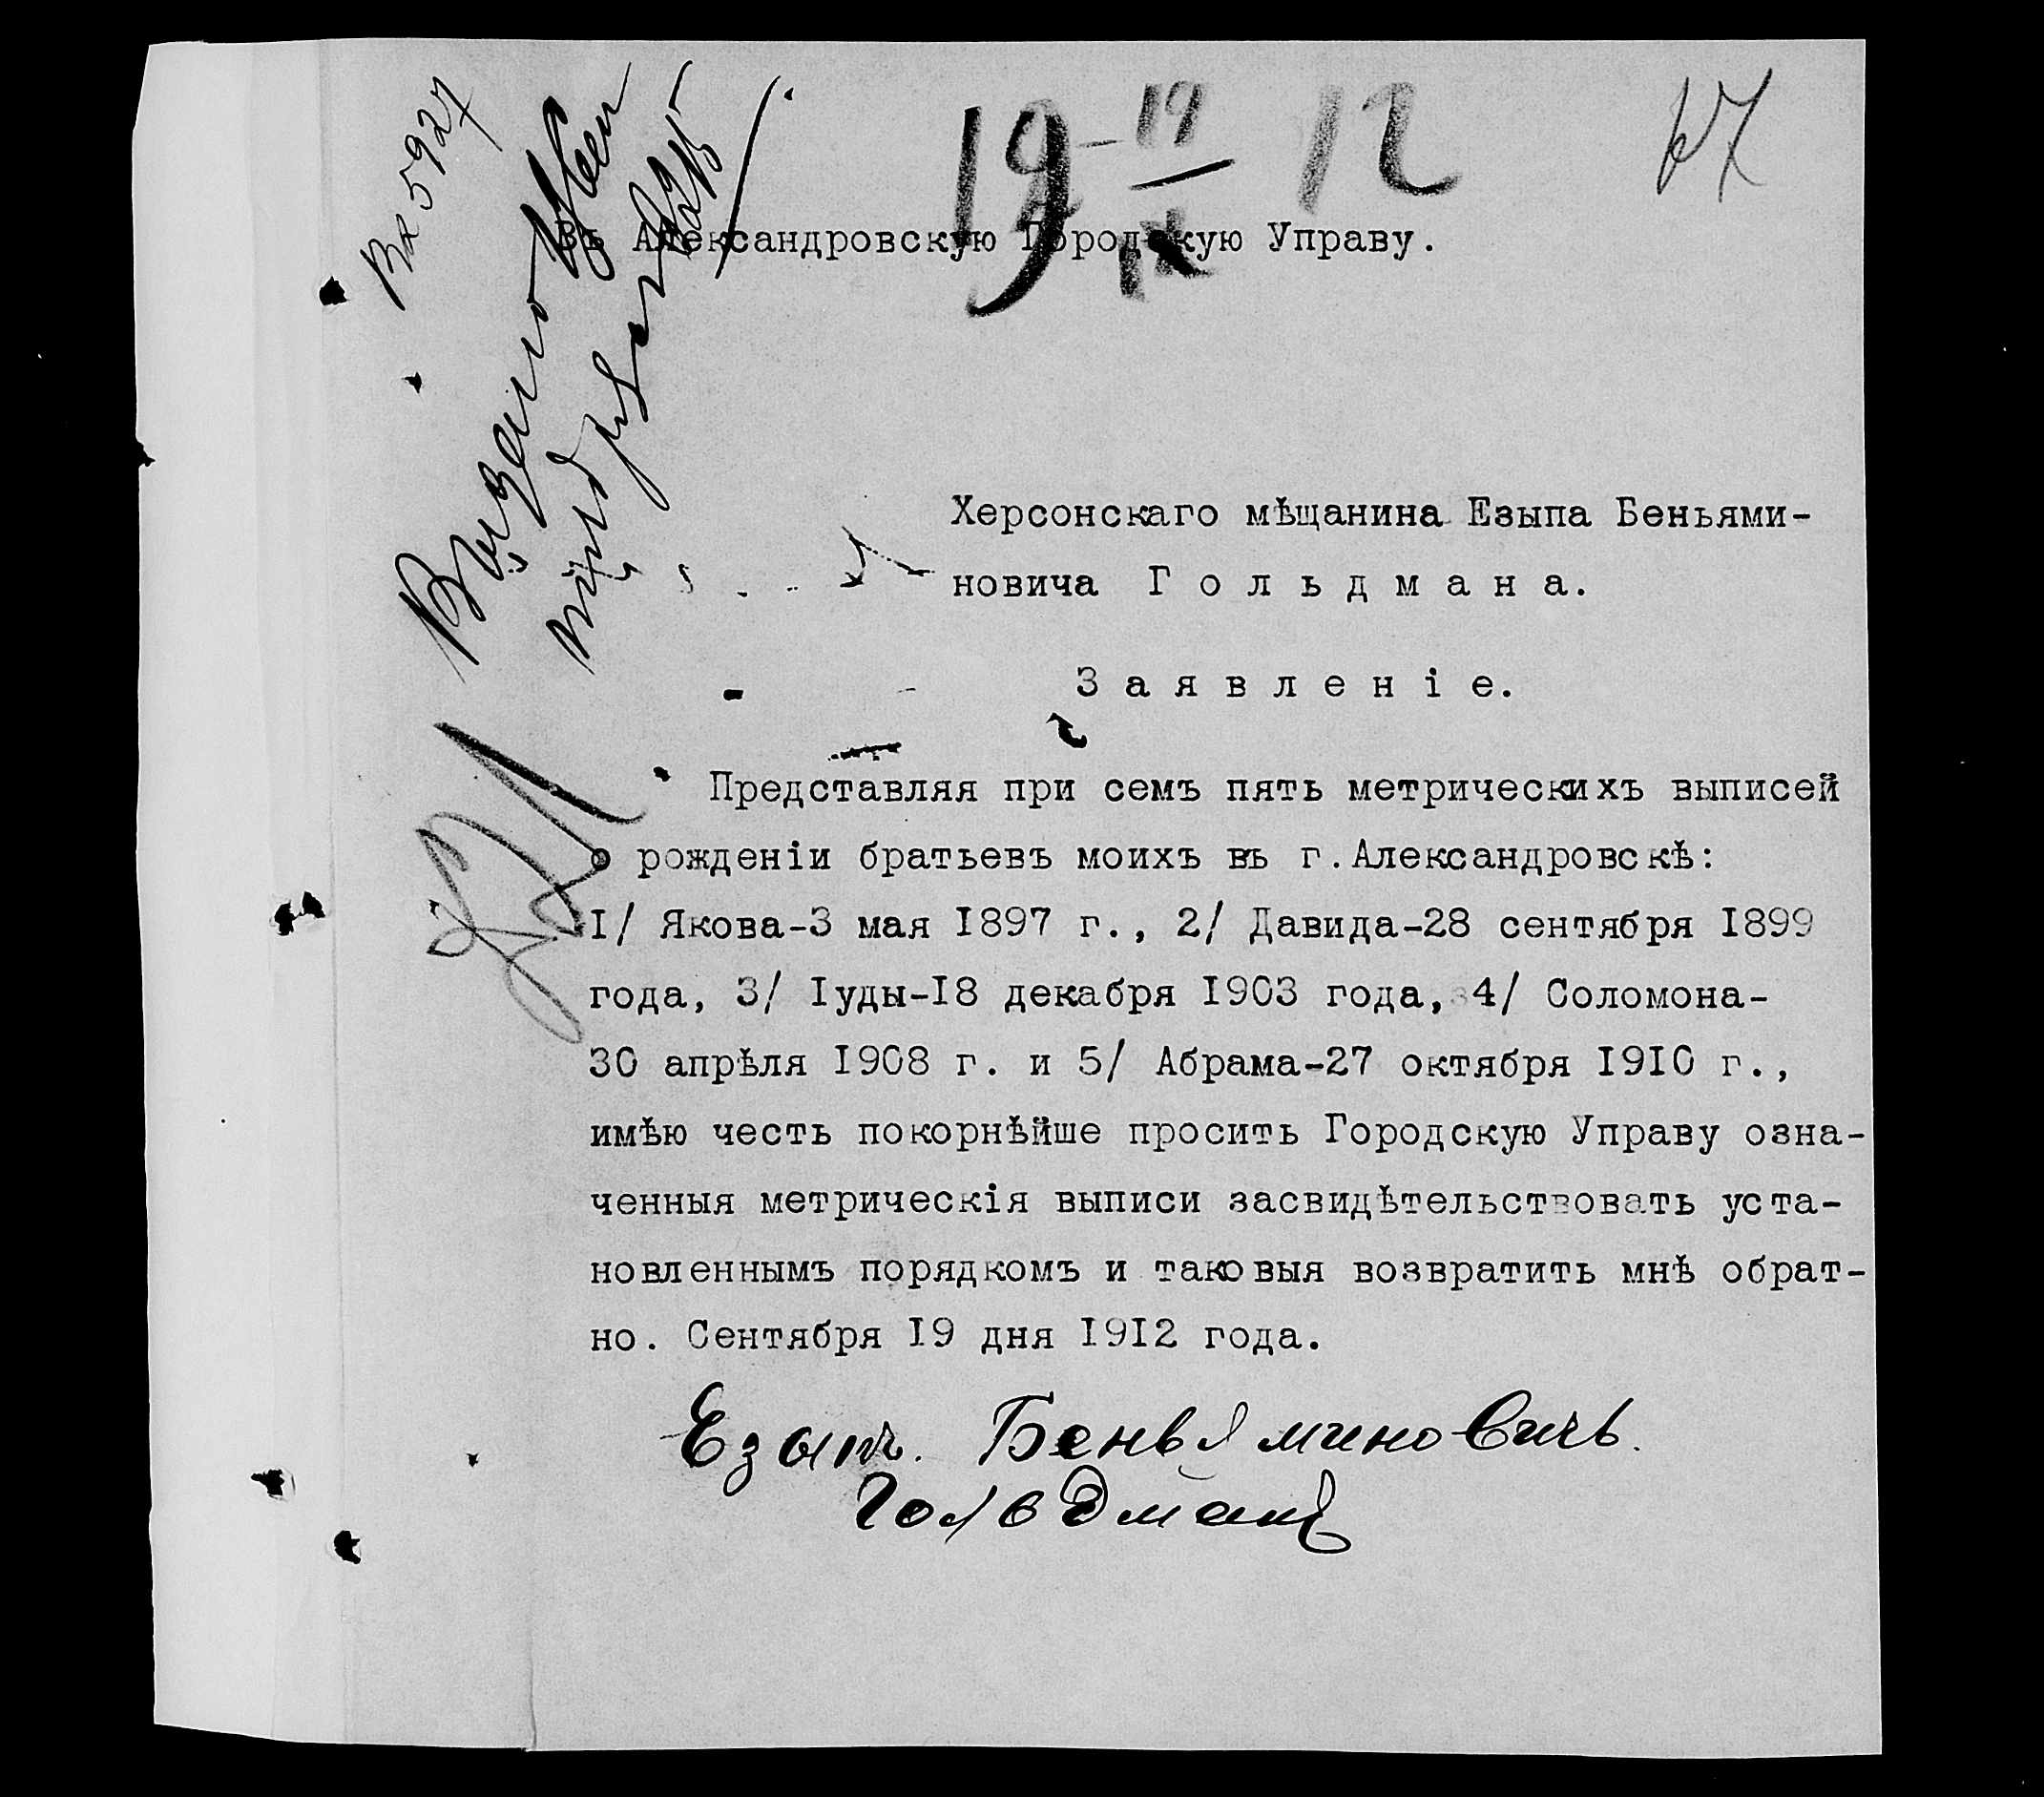 Вх 5927
19 19 12
IX
67
Въ Александровскую Городскую Управу.
Херсонскаго мѣщанина Езыпа Беньями-
новича Гольдмана.
Заявленіе.
Представляя при семъ пять метрическихъ выписей
о рожденіи братьевъ моихъ въ г.Александровскѣ:
I/ Якова-3 мая I897 г., 2/ Давида-28 сентября I899
года, 3/ Іуды-I8 декабря I903 года, 4/ Соломона-
30 апрѣля I908 г. и 5/ Абрама-27 октября I9I0 г.,
имѣю честь покорнѣйше просить Городскую Управу озна-
ченныя метрическія выписи засвидѣтельствовать уста-
новленнымъ порядкомъ и таковыя возвратить мнѣ обрат-
но. Сентября I9 дня I9I2 года.
Езыпъ. Беньяминовичъ.
Гольдманъ